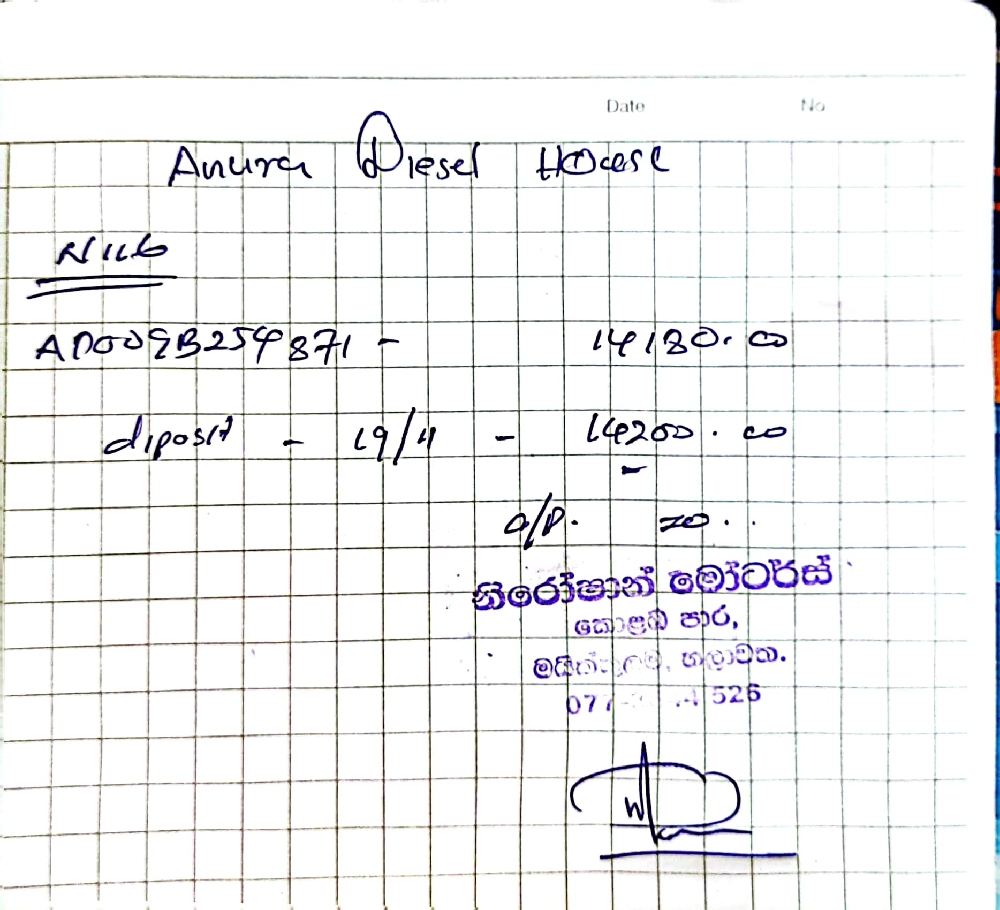 Date No
Anura Diesel House
N116
AD009B254871 - 14180.00
diposit - 19/11 - 14200.00
o/p. 20..
නිරෝෂාන් මෝටර්ස්
කොළඹ පාර,
හලාවත.
526